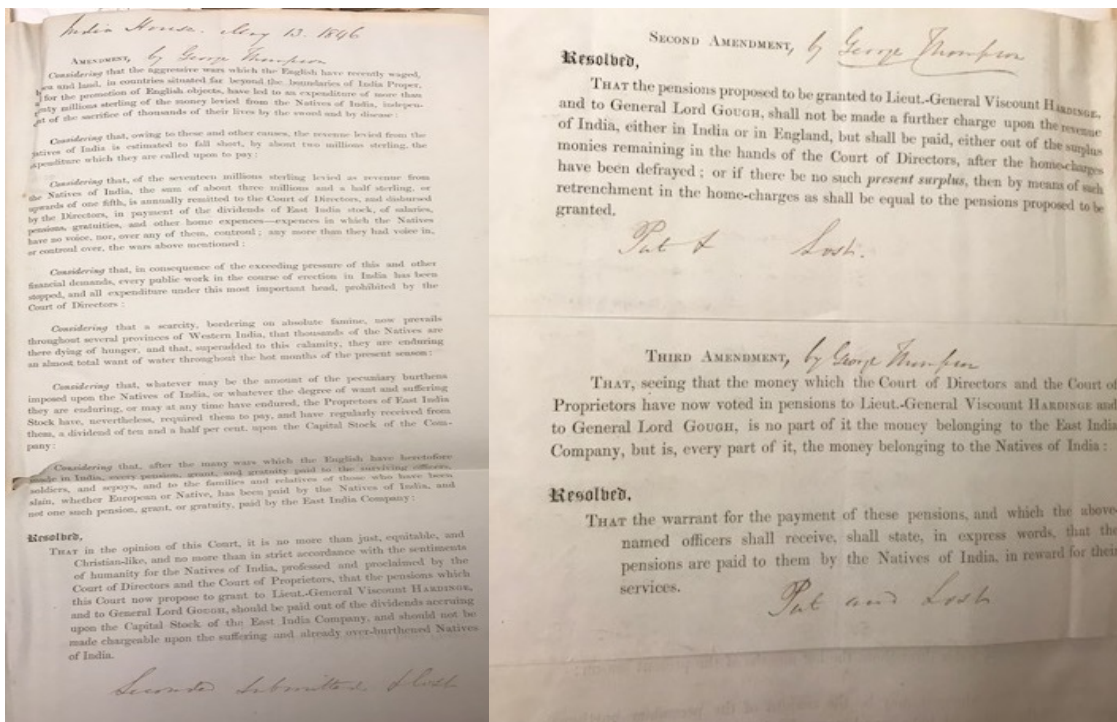 India House. May 13. 1846
AMENDMENT, by George Thompson
Considering that the aggressive wars which the English have recently waged,
and land, in countries situated far beyond the boundaries of India Proper,
for the promotion of English objects, have led to an expenditure of more than
millions sterling of the money levied from the Natives of India, indepen-
of the sacrifice of thousands of their lives by the sword and by disease:
Considering that, owing to these and other causes, the revenue levied from the
Natives of India is estimated to fall short, by about two millions sterling, the
expenditure which they are called upon to pay:
Considering that, of the seventeen millions sterling levied as revenue from
the Natives of India, the sum of about three millions and a half sterling, or
upwards of one fifth, is annually remitted to the Court of Directors, and disbursed
by the Directors, in payment of the dividends of East India stock, of salaries,
pensions, gratuities, and other home expences—expences in which the Natives
have no voice, nor, over any of them, controul; any more than they had voice in,
or controul over, the wars above mentioned:
Considering that, in consequence of the exceeding pressure of this and other
financial demands, every public work in the course of erection in India has been
stopped, and all expenditure under this most important head, prohibited by the
Court of Directors:
Considering that a scarcity, bordering on absolute famine, now prevails
throughout several provinces of Western India, that thousands of the Natives are
there dying of hunger, and that, superadded to this calamity, they are enduring
an almost total want of water throughout the hot months of the present season:
Considering that, whatever may be the amount of the pecuniary burthens
imposed upon the Natives of India, or whatever the degree of want and suffering
they are enduring, or may at any time have endured, the Propretors of East India
Stock have, nevertheless, required them to pay, and have regularly received from
them, a dividend of ten and a half per cent. upon the Capital Stock of the Com-
pany:
Considering that, after the many wars which the English have heretofore
made in India, every pension, grant, and gratuity paid to the surviving officers,
soldiers, and sepoys, and to the families and relatives of those who have been
slain, whether European or Native, has been paid by the Natives of India, and
not one such pension, grant, or gratuity, paid by the East India Company:
Resolved,
THAT in the opinion of this Court, it is no more than just, equitable, and
Christian-like, and no more than in strict accordance with the sentiments
of humanity for the Natives of India, professed and proclaimed by the
Court of Directors and the Court of Proprietors, that the pensions which
this Court now propose to grant to Lieut.-General Viscount HARDINGE,
and to General Lord GOUGH, should be paid out of the dividends accruing
upon the Capital Stock of the East India Company, and should not be
made chargeable upon the suffering and already over-burthened Natives
of India.
Seconded Submitted & Lost
SECOND AMENDMENT, by George Thompson
Resolved,
THAT the pensions proposed to be granted to Lieut.-General Viscount HARDINGE,
and to General Lord GOUGH, shall not be made a further charge upon the revenue
of India, either in India or in England, but shall be paid, either out of the surplus
monies remaining in the hands of the Court of Directors, after the home-charges
have been defrayed; or if there be no such present surplus, then by means of such
retrenchment in the home-charges as shall be equal to the pensions proposed to be
granted.
Put & Lost.
THIRD AMENDMENT, by George Thompson
THAT, seeing that the money which the Court of Directors and the Court of
Proprietors have now voted in pensions to Lieut.-General Viscount HARDINGE and
to General Lord GOUGH, is no part of it the money belonging to the East India
Company, but is, every part of it, the money belonging to the Natives of India:
Resolved,
THAT the warrant for the payment of these pensions, and which the above-
named officers shall receive, shall state, in express words, that the
pensions are paid to them by the Natives of India, in reward for their
services.
Put and Lost